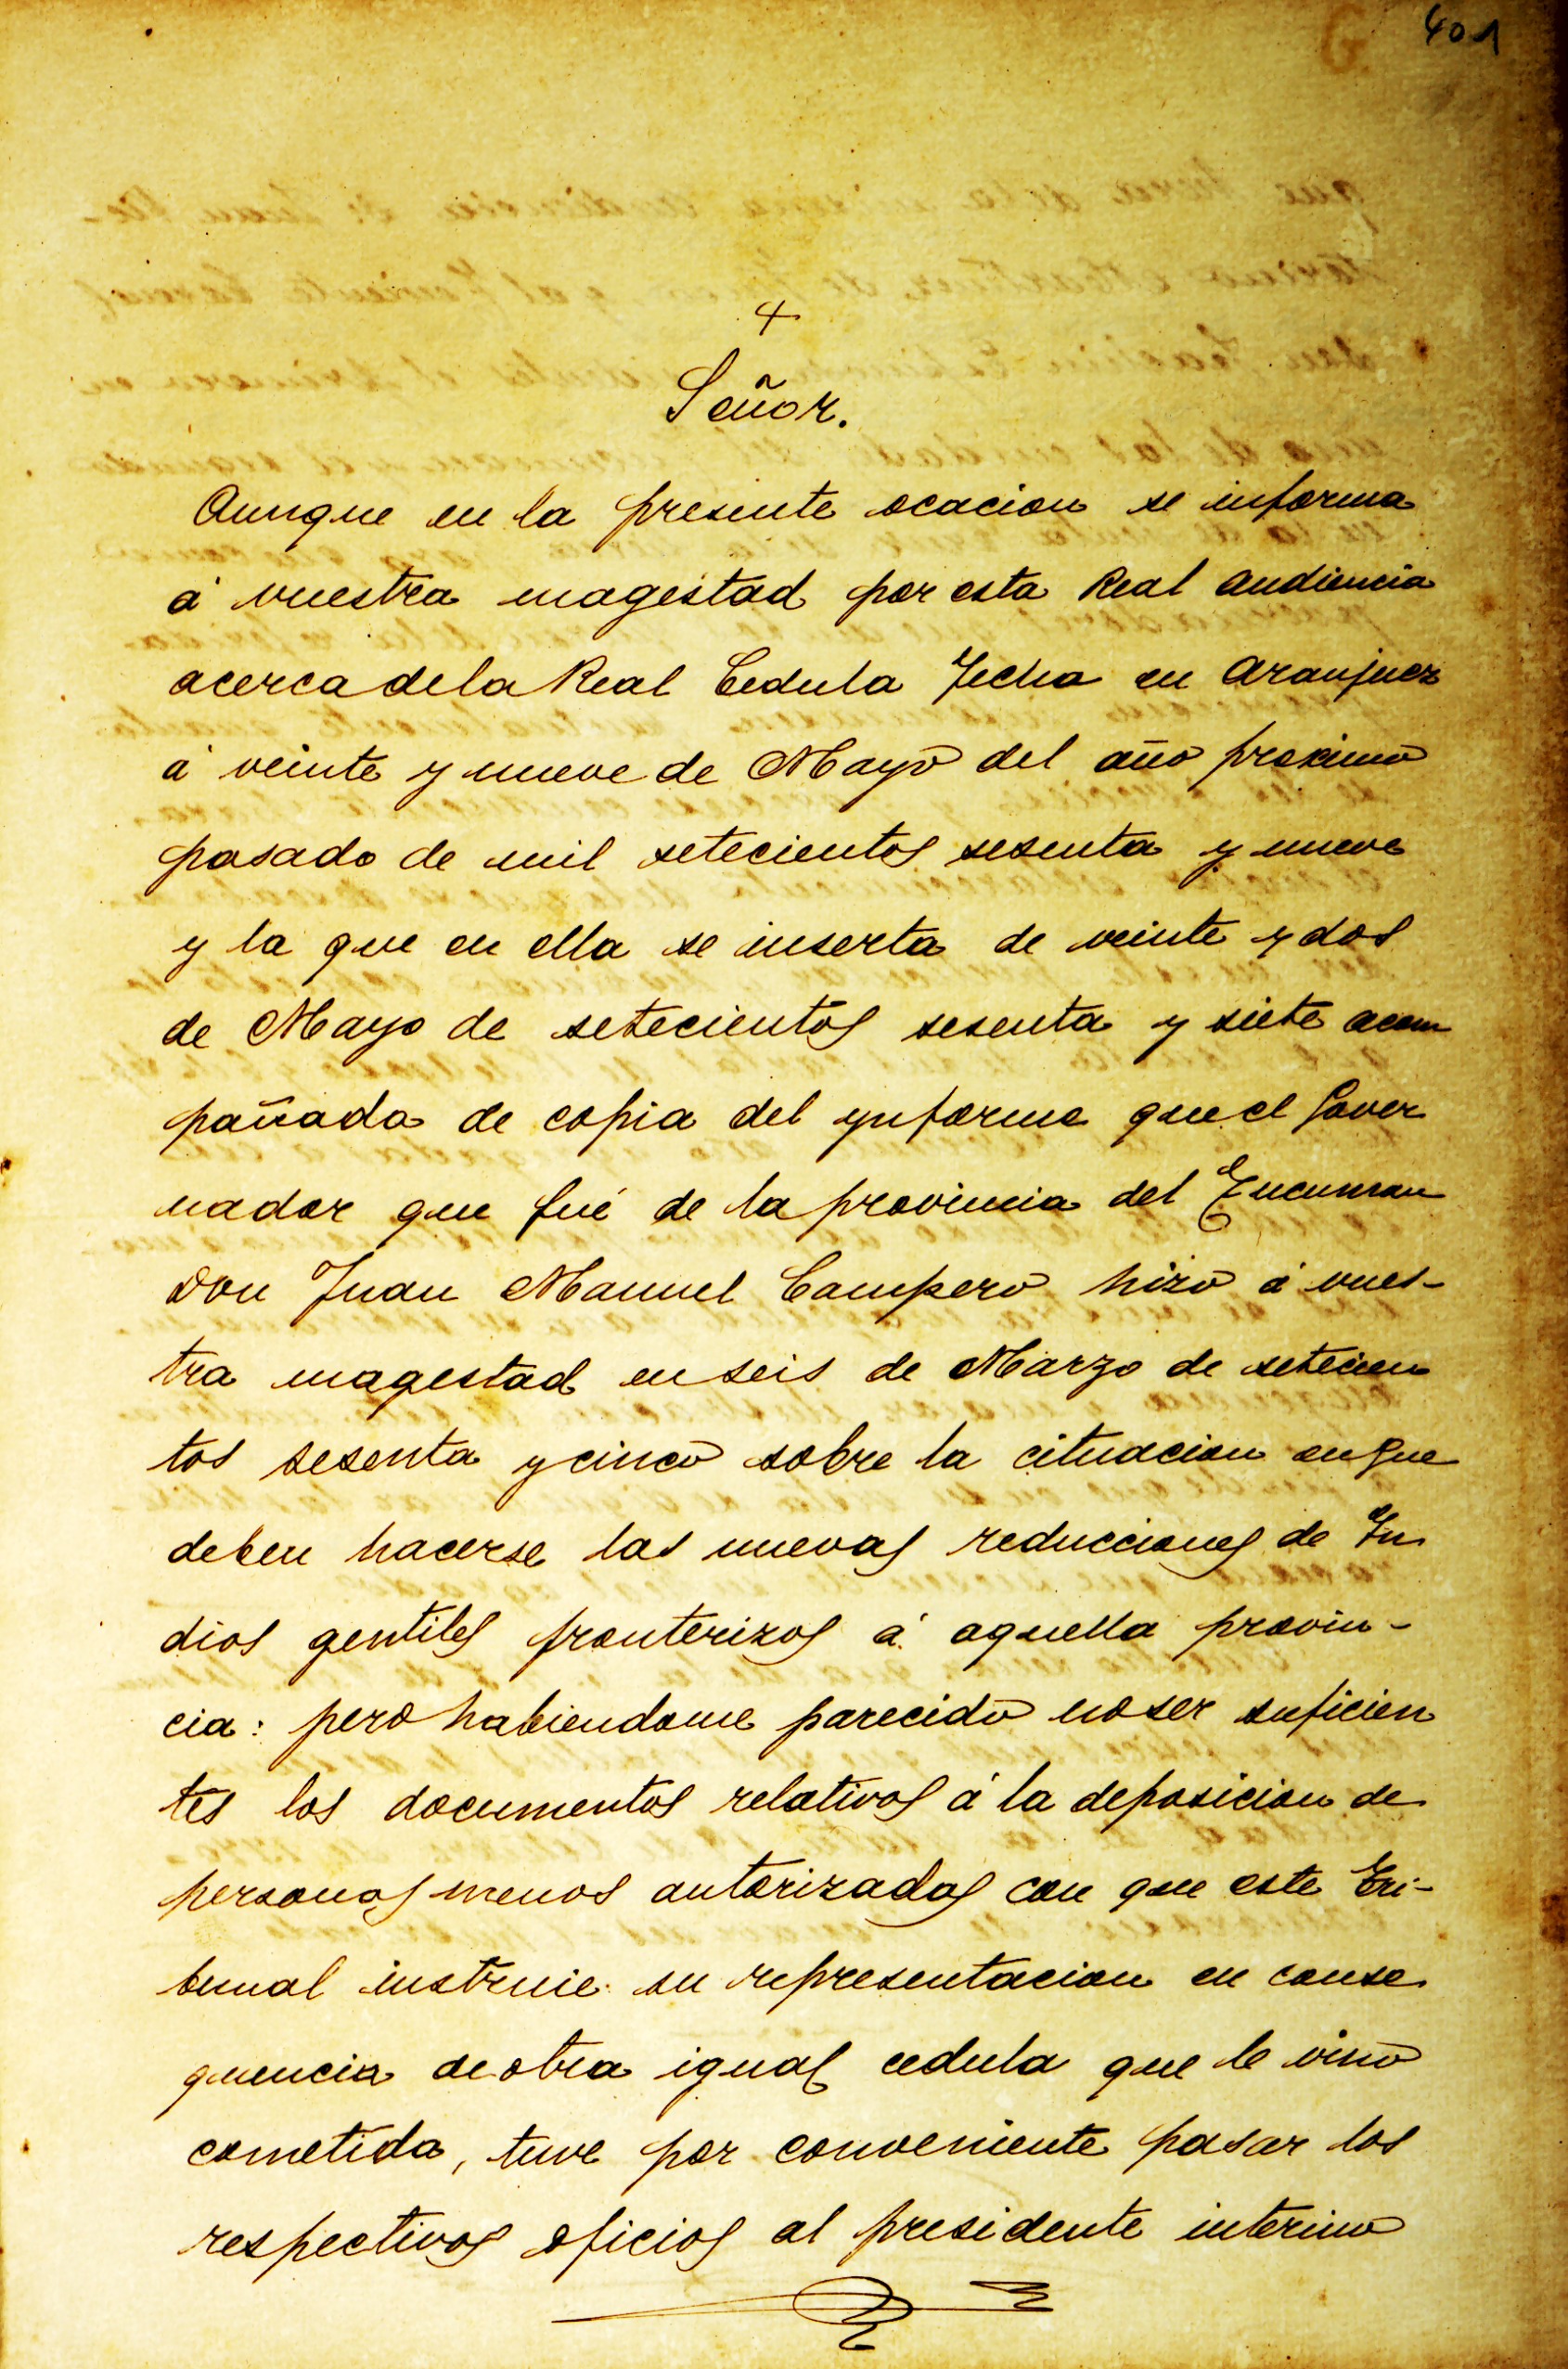 G 401
+
Señor.
Aunque en la presente ocacion se informa
á vuestra magestad por esta Real audiencia
acerca de la Real Cedula fecha en Aranjuez
á veinte y nueve de Mayo del año proximo
pasado de mil setecientos sesenta y nueve
y la que en ella se inserta de veinte y dos
de Mayo de setecientos sesenta y siete acom
pañada de copia del ynforme que el Gover
nador que fué de la provincia del Tucuman
Don Juan Manuel Campero hizo á vues-
tra magestad en seis de Marzo de setecien
tos sesenta y cinco sobre la cituacion en que
deben hacerse las nuevas reducciones de In
dios gentiles fronterizos á aquella provin-
cia: pero habiendome parecido no ser suficien
tes los documentos relativos á la deposicion de
personas menos autorizadas con que este Tri-
bunal instruie su representacion en conse
quencia de otra igual cedula que le vino
cometida, tuve por conveniente pasar los
respectivos oficios al presidente interino